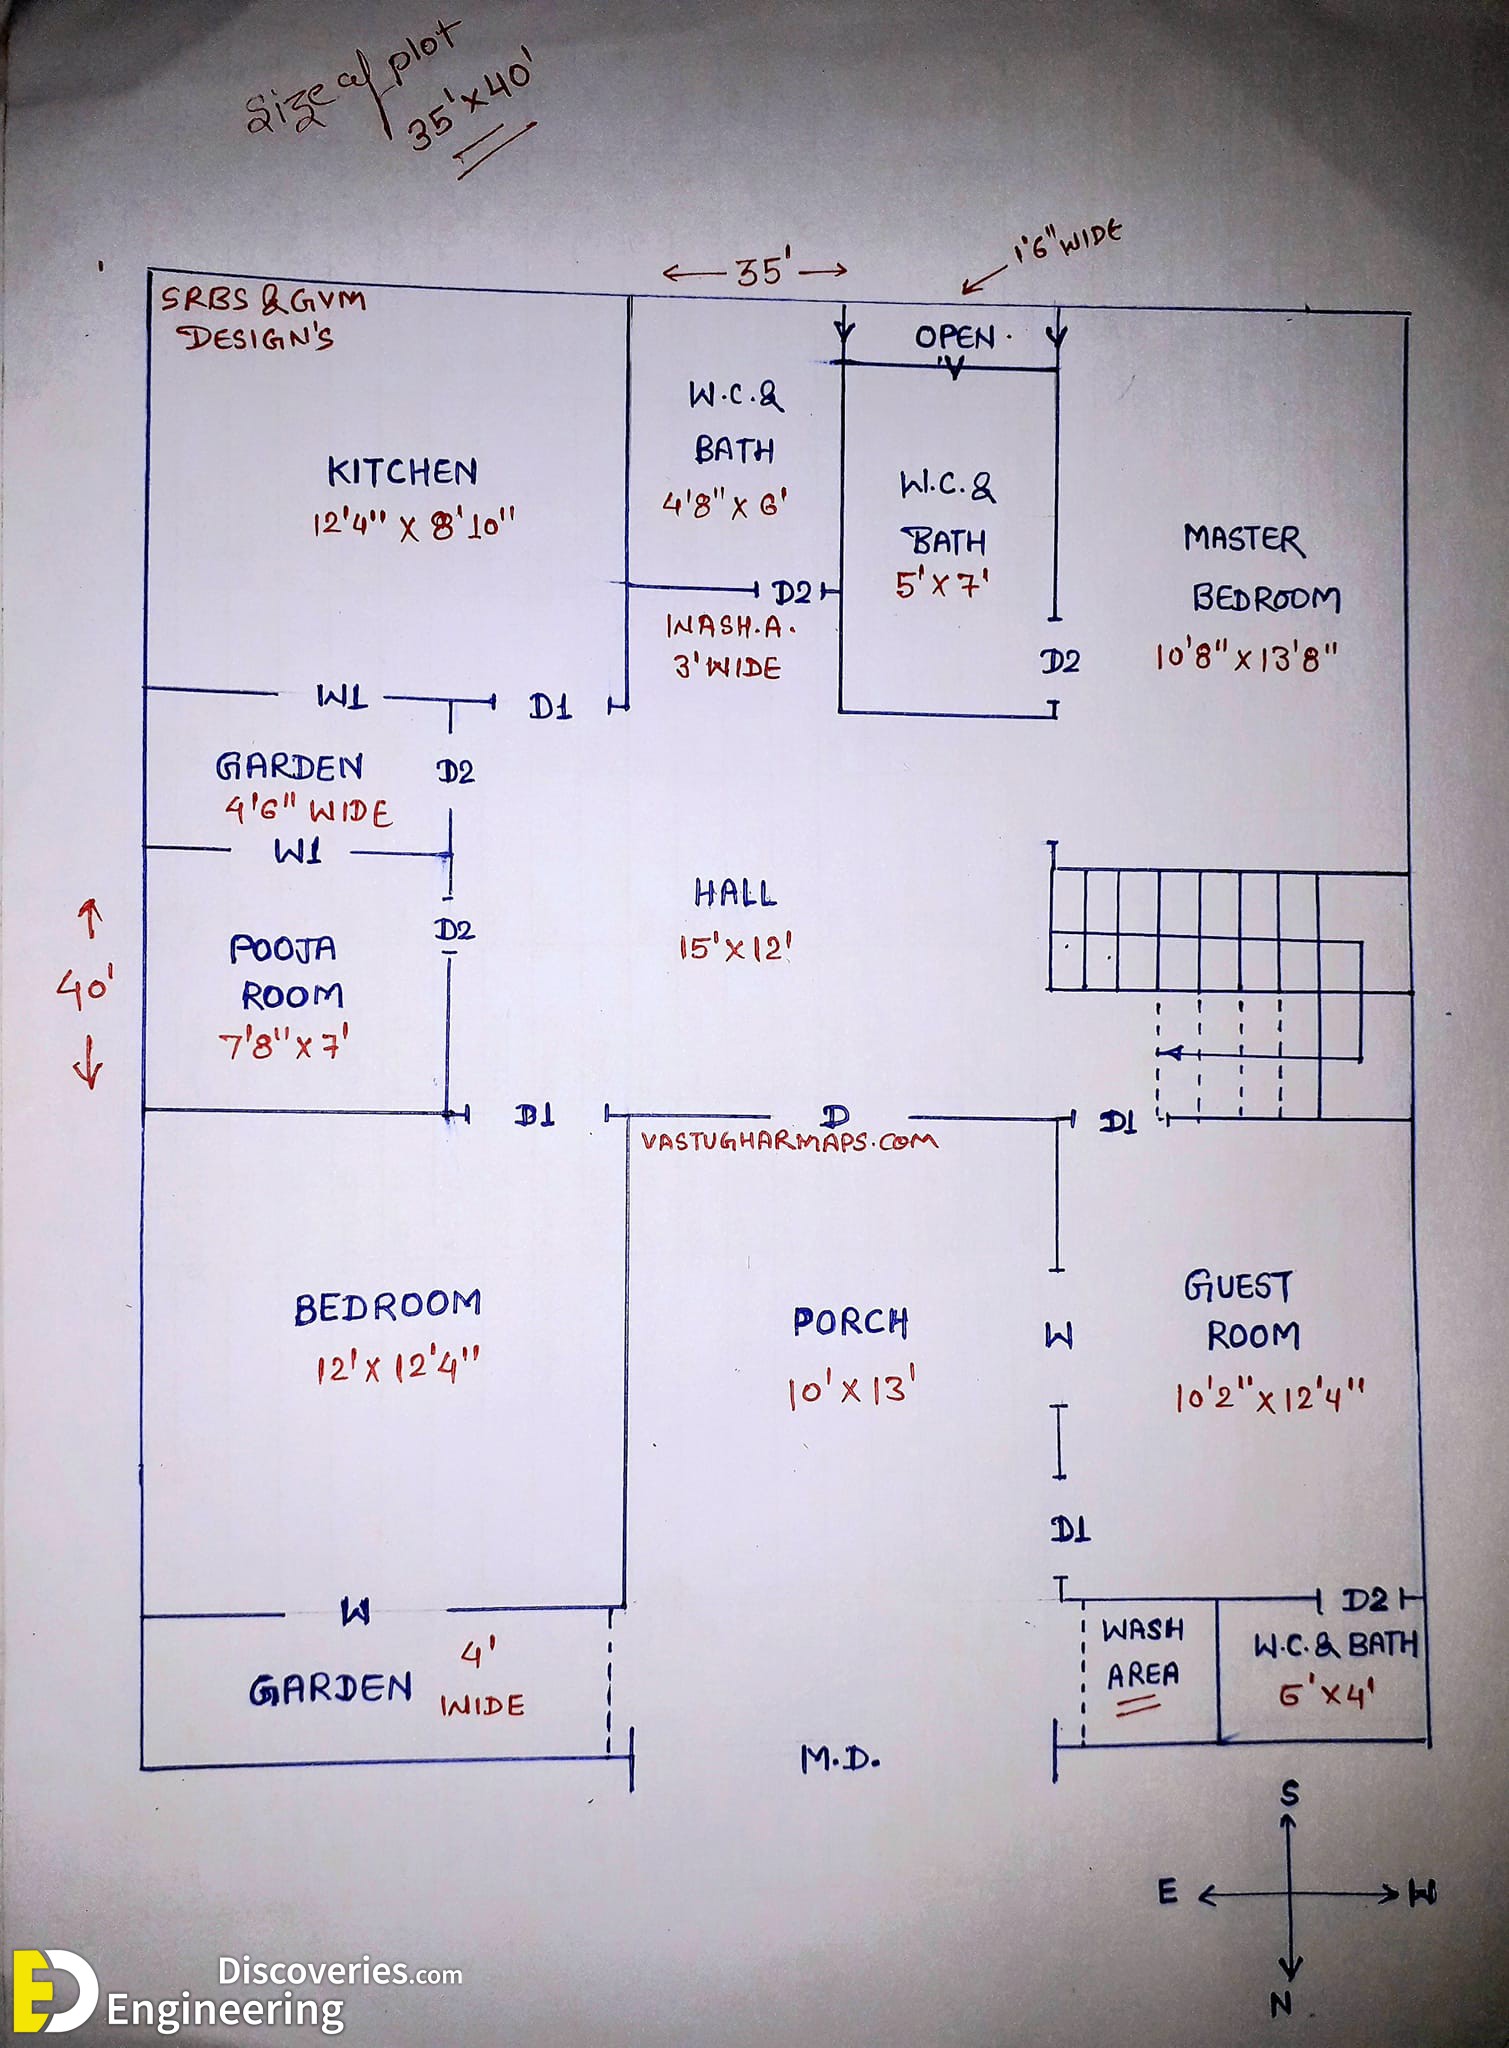 Size of plot
35'x40'
1'6" WIDE
← 35' →
SRBS & GVM
DESIGN'S
OPEN.
W.C.&
BATH
4'8" X 6'
KITCHEN
12'4" X 8'10"
W.C.&
BATH
5'X7'
MASTER
BEDROOM
10'8"x13'8"
D2
WASH.A.
3'WIDE
D2
W1
D1
GARDEN
4'6" WIDE
D2
W1
HALL
15'X12'
D2
POOJA
ROOM
7'8"x7'
40'
D1
D
D1
VASTUGHARMAPS.COM
BEDROOM
12'X12'4"
PORCH
10'X13'
W
GUEST
ROOM
10'2"x12'4"
D1
W
D2
GARDEN
4'
WIDE
WASH
AREA
W.C.& BATH
6'X4'
M.D.
S
E
W
N
ED
Discoveries.com
Engineering